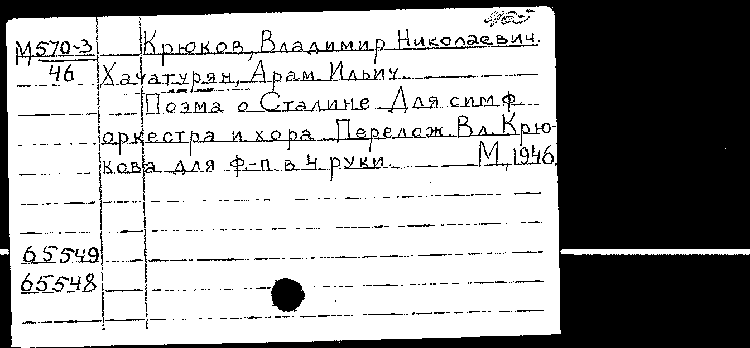 М570-3 Крюков, Владимир Николаевич.
46 Хачатурян, Арам Ильич.
Поэма о Сталине. Для симф.
оркестра и хора. Перелож. Вл. Крю-
кова для ф-п в 4 руки. М, 1946
65549
65548